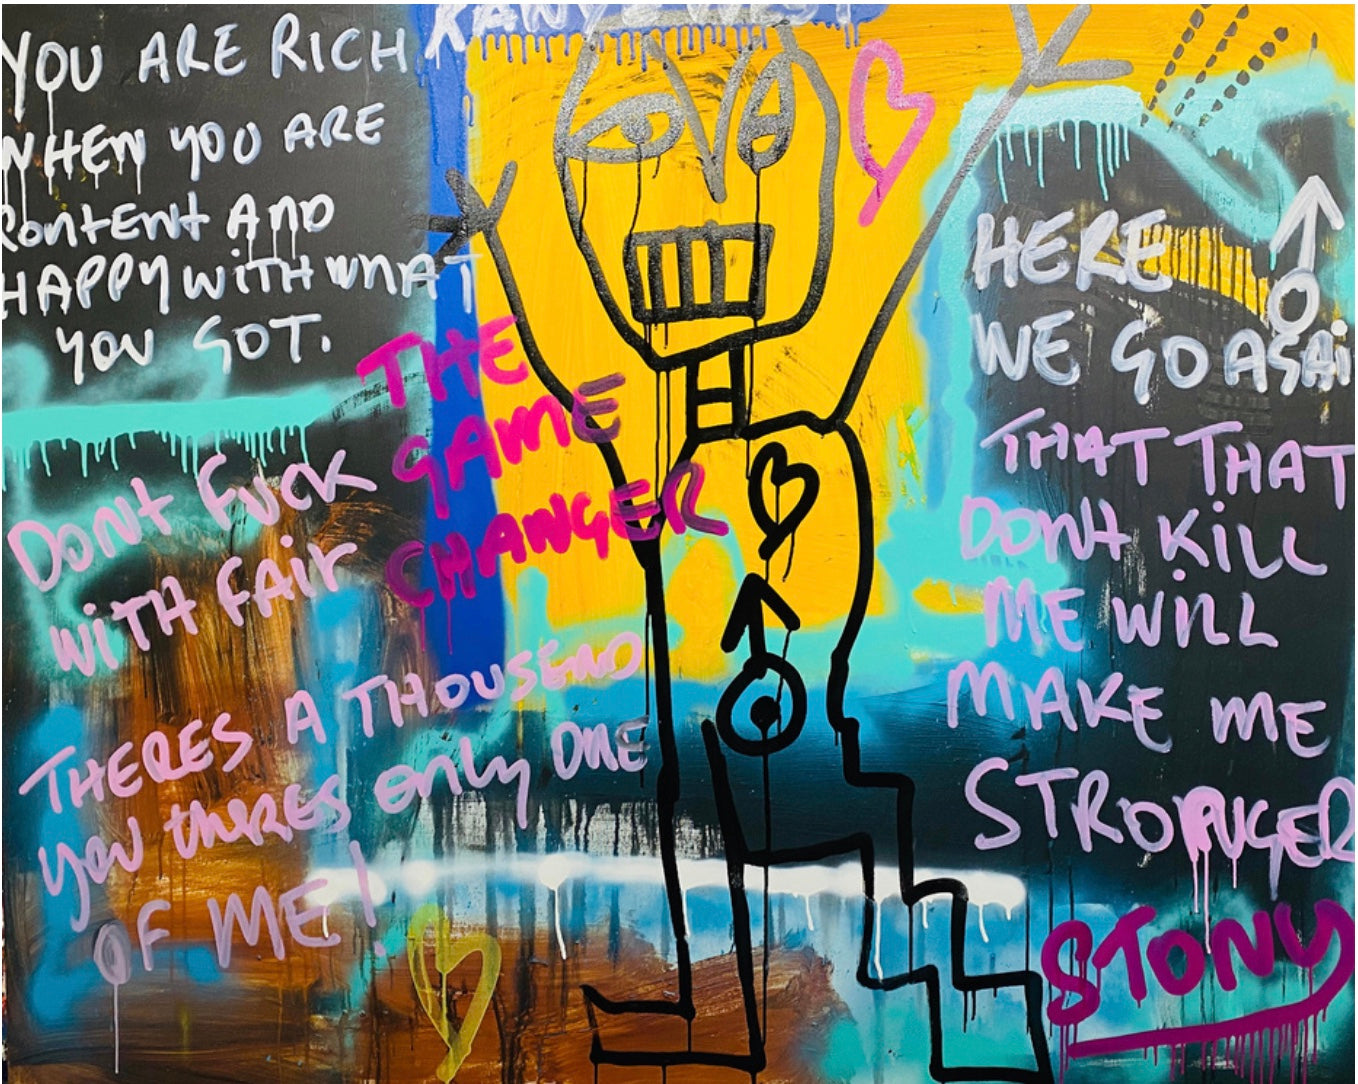 KANYE WEST
YOU ARE RICH
WHEN YOU ARE
CONTENT AND
HAPPY WITH WHAT
YOU GOT.
THE
GAME
CHANGER
DONT FUCK
WITH FAIR
THERES A THOUSEND
YOU THERES ONLY ONE
OF ME!
HERE
WE GO AGAI
THAT THAT
DONT KILL
ME WILL
MAKE ME
STRONGER
STONY